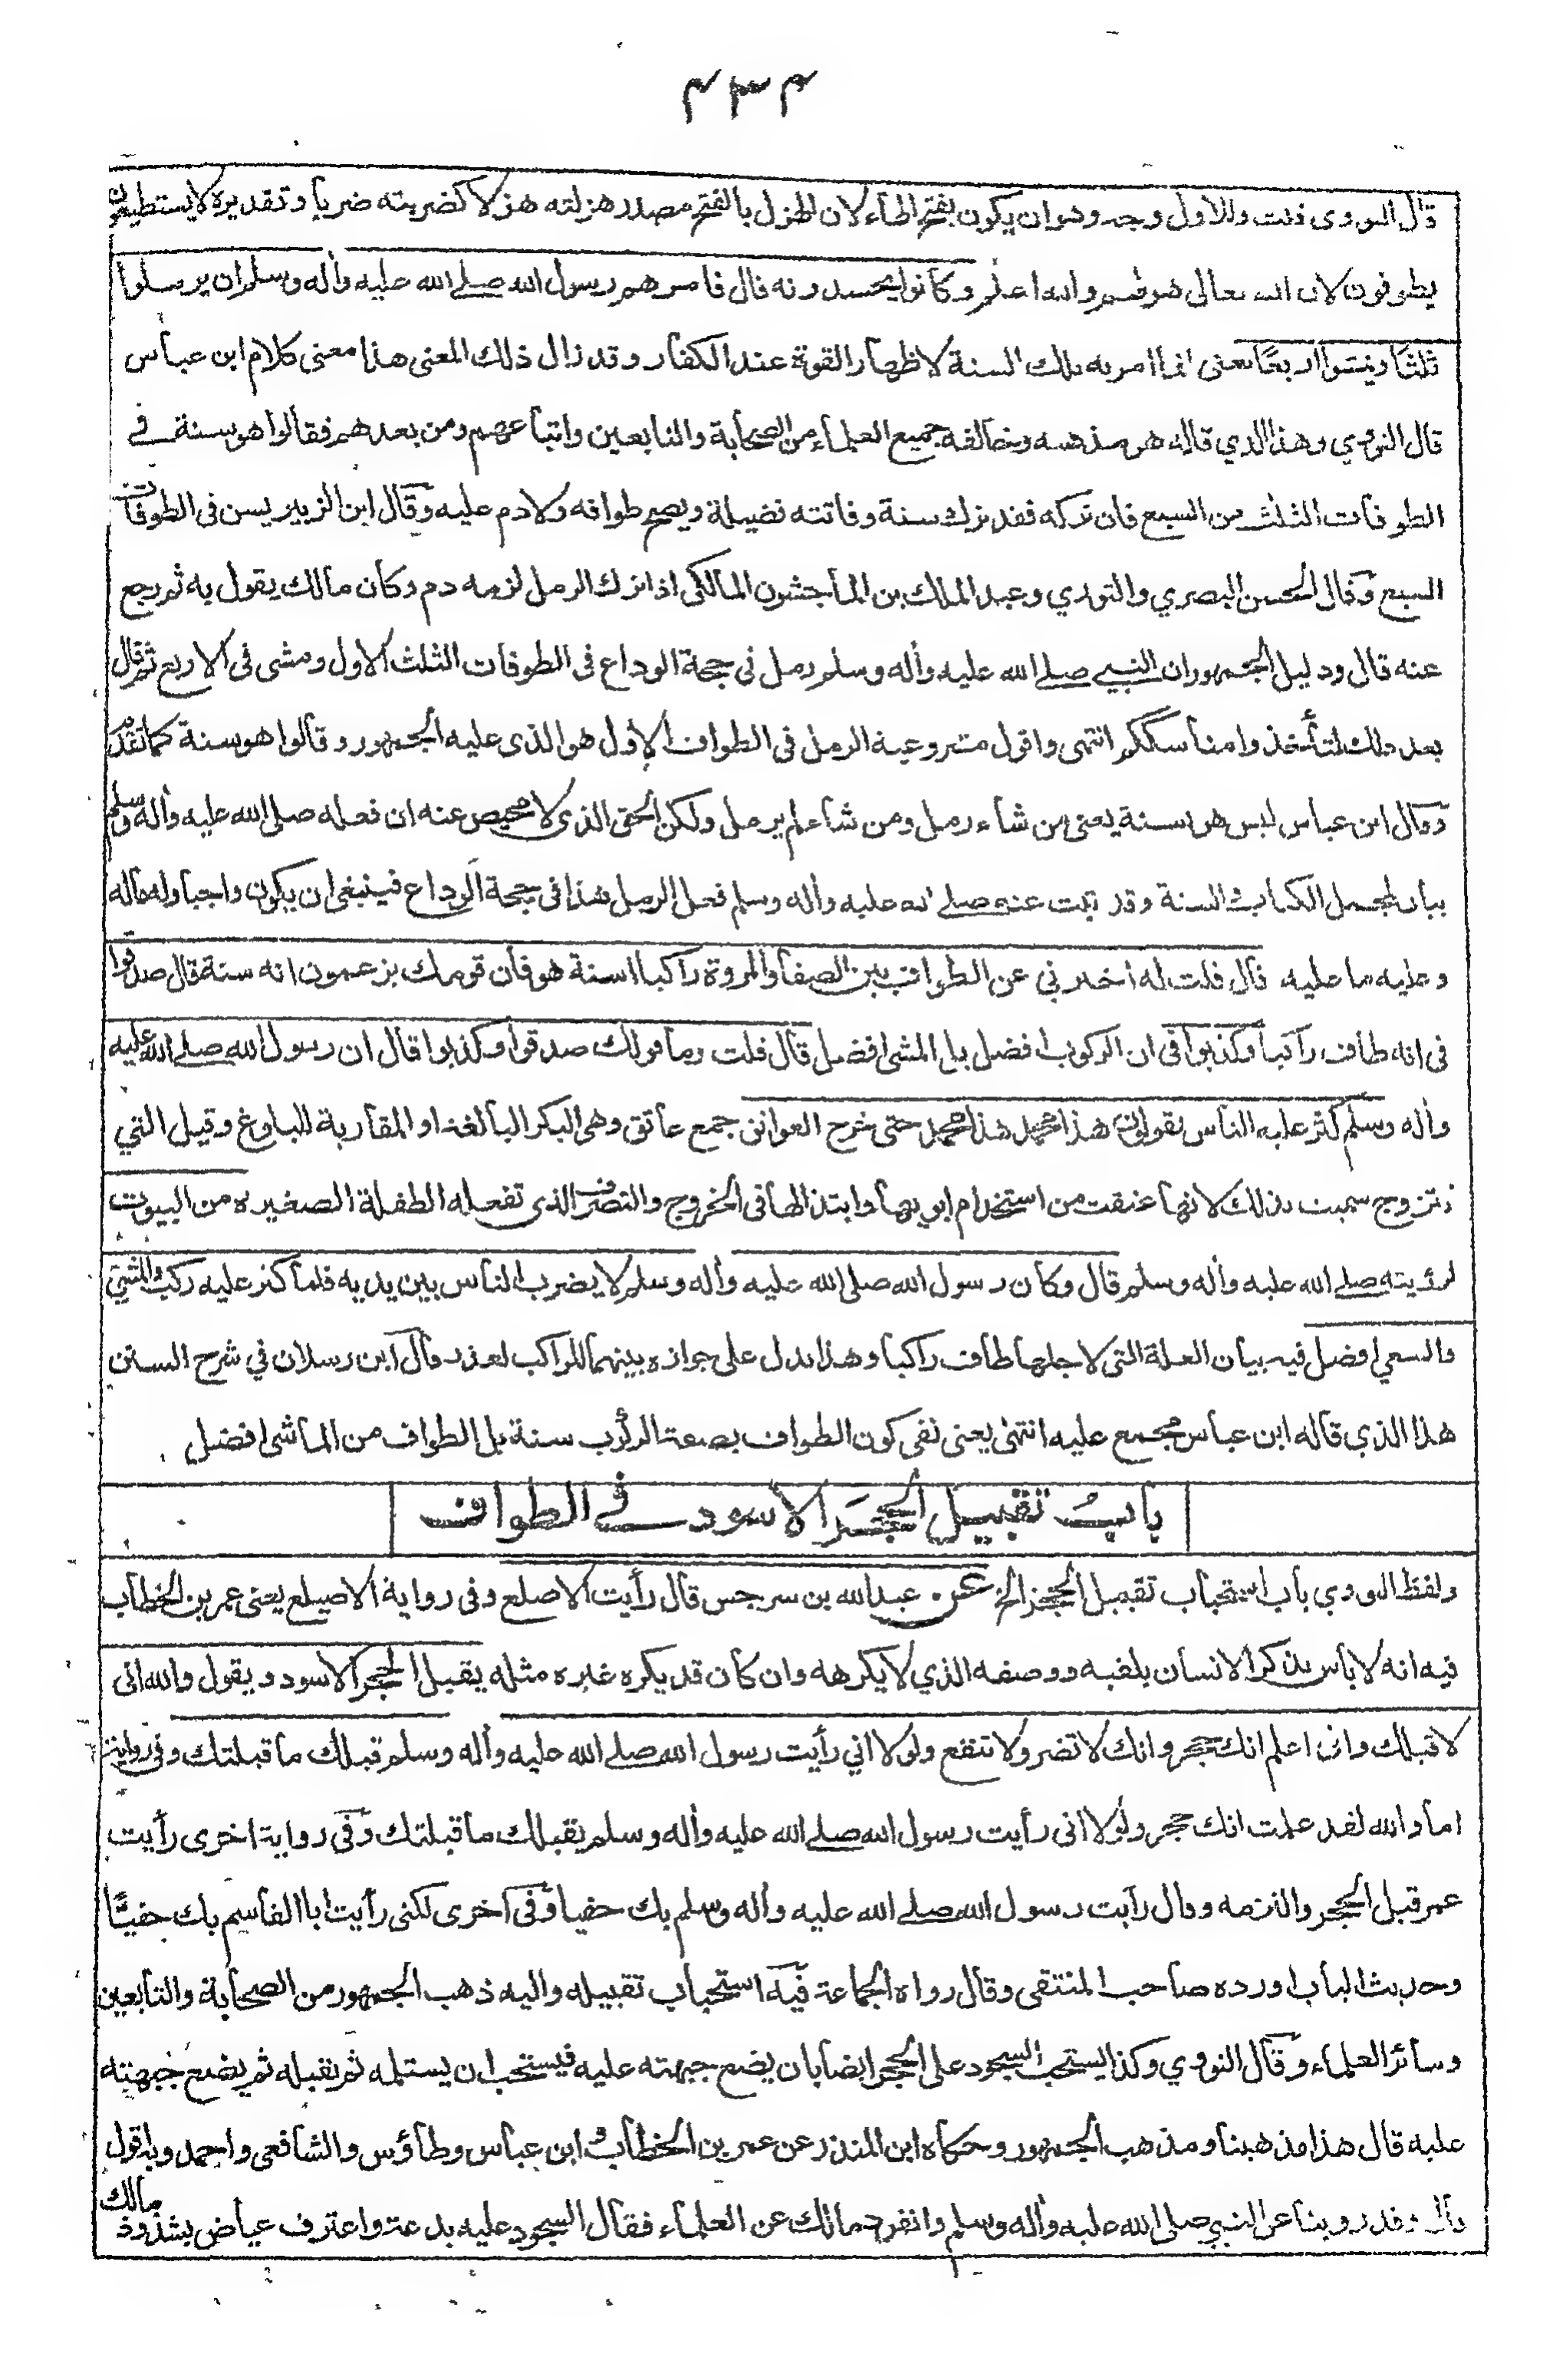 ۴۳۴
قال النووى قلت وللاول وجه وهو ان يكون بفتح الهاء لان الهزل بالفتح مصدر هزلته هزلا كضربته ضربا وتقديره لا يستطيعون
يطوفون لان الله تعالى هزلهم والله اعلم وكانوا يحسدونه قال فامرهم رسول الله صلى الله عليه وأله وسلم ان يرملوا
ثلثا ويمشوا اربعا يعنى انما امر به تلك السنة لاظهار القوة عند الكفار وقد زال ذلك المعنى هذا معنى كلام ابن عباس
قال النووي وهذا الذي قاله هو مذهبه وخالفه جميع العلماء من الصحابة والتابعين واتباعهم ومن بعدهم فقالوا هو سنة في
الطوفات الثلث من السبع فان تركه فقد ترك سنة وفاتته فضيلة ويصح طوافه ولا دم عليه وقال ابن الزبير يسن فى الطوفات
السبع وقال الحسن البصري والثوري وعبد الملك بن الماجشون المالكى اذا ترك الرمل لزمه دم وكان مالك يقول به ثم رجع
عنه قال ودليل الجمهور ان النبي صلى الله عليه وأله وسلم رمل فى حجة الوداع فى الطوفات الثلث الاول ومشى فى الاربع ثم قال
بعد ذلك لتأخذوا مناسككم انتهى واقول مشروعية الرمل فى الطواف الاول هو الذى عليه الجمهور وقالوا هو سنة كما تقدم
وقال ابن عباس ليس هو سنة يعنى من شاء رمل ومن شاء لم يرمل ولكن الحق الذى لا محيص عنه ان فعله صلى الله عليه وأله وسلم
بيان لمجمل الكتاب والسنة وقد ثبت عنه صلى الله عليه وأله وسلم فعل الرمل هذا فى حجة الوداع فينبغى ان يكون واجبا وله ماله
وعليه ما عليه قال قلت له اخبرني عن الطواف بين الصفا والمروة راكبا اسنة هو فان قومك يزعمون انه سنة قال صدقوا
فى انه طاف راكبا وكذبوا فى ان الركوب افضل بل المشى افضل قال قلت وما قولك صدقوا وكذبوا قال ان رسول الله صلى الله عليه
وأله وسلم كثر عليه الناس يقولون هذا محمد هذا محمد حتى خرج العواتق جمع عاتق وهى البكر البالغة او المقاربة للبلوغ وقيل التي
تتزوج سميت بذلك لانها عتقت من استخدام ابويها وابتذالها فى الخروج والتصرف الذى تفعله الطفلة الصغيرة من البيوت
لرؤيته صلى الله عليه وأله وسلم قال وكان رسول الله صلى الله عليه وأله وسلم لا يضرب الناس بين يديه فلما كثر عليه ركب والمشي
والسعي افضل فيه بيان العلة التى لاجلها طاف راكبا وهذا يدل على جوازه بينهما للراكب لعذر وقال ابن رسلان في شرح السنن
هذا الذي قاله ابن عباس مجمع عليه انتهى يعنى نفى كون الطواف بصفة الركوب سنة بل الطواف من الماشى افضل
باب تقبيل الحجر الاسود في الطواف
ولفظ النووي باب استحباب تقبيل الحجر الخ عن عبد الله بن سرجس قال رأيت الاصلع وفى رواية الاصيلع يعنى عمر بن الخطاب
فيه انه لا بأس بذكر الانسان بلقبه ووصفه الذي لا يكرهه وان كان قد يكره غيره مثله يقبل الحجر الاسود ويقول والله انى
لاقبلك وانى اعلم انك حجر وانك لا تضر ولا تنفع ولولا اني رأيت رسول الله صلى الله عليه وأله وسلم قبلك ما قبلتك وفى رواية
اما والله لقد علمت انك حجر ولولا انى رأيت رسول الله صلى الله عليه وأله وسلم يقبلك ما قبلتك وفى رواية اخرى رأيت
عمر قبل الحجر والتزمه وقال رأيت رسول الله صلى الله عليه وأله وسلم بك حفيا وفى اخرى لكنى رأيت ابا القاسم بك حفيًّا
وحديث الباب اورده صاحب المنتقى وقال رواه الجماعة فيه استحباب تقبيله واليه ذهب الجمهور من الصحابة والتابعين
وسائر العلماء وقال النووي وكذا يستحب السجود على الحجر ايضا بان يضع جبهته عليه فيستحب ان يستلمه ثم يقبله ثم يضع جبهته
عليه قال هذا مذهبنا ومذهب الجمهور وحكاه ابن المنذر عن عمر بن الخطاب وابن عباس وطاؤس والشافعى واحمد وبه اقول
قال وقد روينا عن النبي صلى الله عليه وأله وسلم وانفرد مالك عن العلماء فقال السجود عليه بدعة واعترف عياض بشذوذ مالك